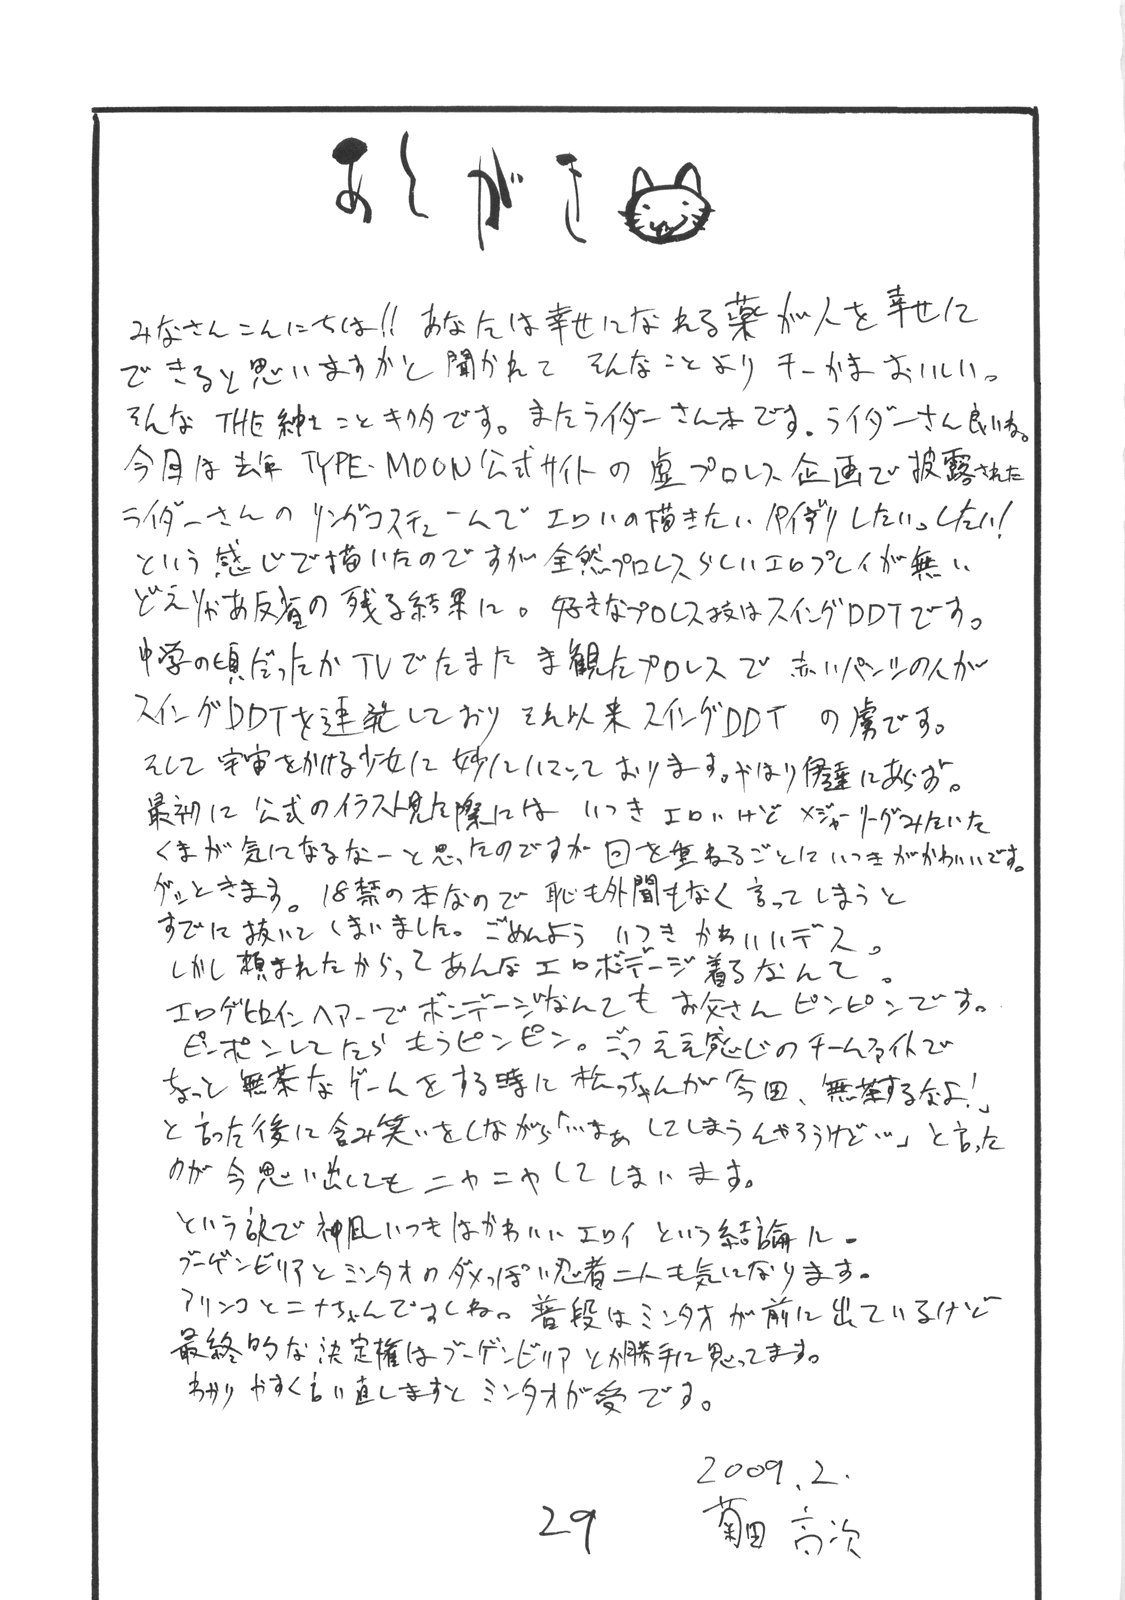 あとがき
みなさんこんにちは!! あなたは幸せになれる薬が人を幸せに
できると思いますかと聞かれて そんなことより チーかま おいしい。
そんな THE紳士ことキクタです。またライダーさん本です。ライダーさん良いね。
今回は去年 TYPE-MOON公式サイトの 虚プロレス企画で披露された
ライダーさんの リングコスチュームで エロいの描きたい パイズリしたいっしたい!
という感じで描いたのですが 全然プロレスらしいエロプレイが無い
どえりゃあ反省の残る結果に。好きなプロレス技はスイングDDTです。
中学の頃だったか TVでたまたま観たプロレスで 赤いパンツの人が
スイングDDTを連発しており それ以来 スイングDDT の虜です。
そして 宇宙をかける少女に 妙に おります。やはり伊達にあらず。
最初に 公式のイラスト見た際には いつき エロいけど メジャーリーグみたいな
くまが 気になるなーと思ったのですが 回を重ねるごとにいつきがかわいいです。
グッときます。18禁の本なので 恥も外聞もなく言ってしまうと
すでに抜いてしまいました。ごめんよう いつき かわいいデス。
しかし 頼まれたからってあんなエロボンデージ着るなんて。
エロゲヒロインヘアーでボンデージなんてもうお父さん ピンピンです。
ピンポンしてたら もうピンピン。ごっつええ感じのチームファイトで
ちょっと無茶なゲームをする時に 松っちゃんが「今回、無茶するなよ!」
と言った後に含み笑いをしながら「…まぁ してしまうんやろうけど…」と言った
のが 今思い出しても ニヤニヤしてしまいます。
という訳で神凪いつきはかわいい エロイ という結論に。
ブーゲンビリアとミンタオの ダメっぽい忍者二人も気になります。
アリンコとニナちゃんですしね。普段はミンタオが前に出ているけど
最終的な決定権はブーゲンビリア とか勝手に思ってます。
わかりやすく言い直しますと ミンタオが受です。
2009.2.
菊田 高次
29